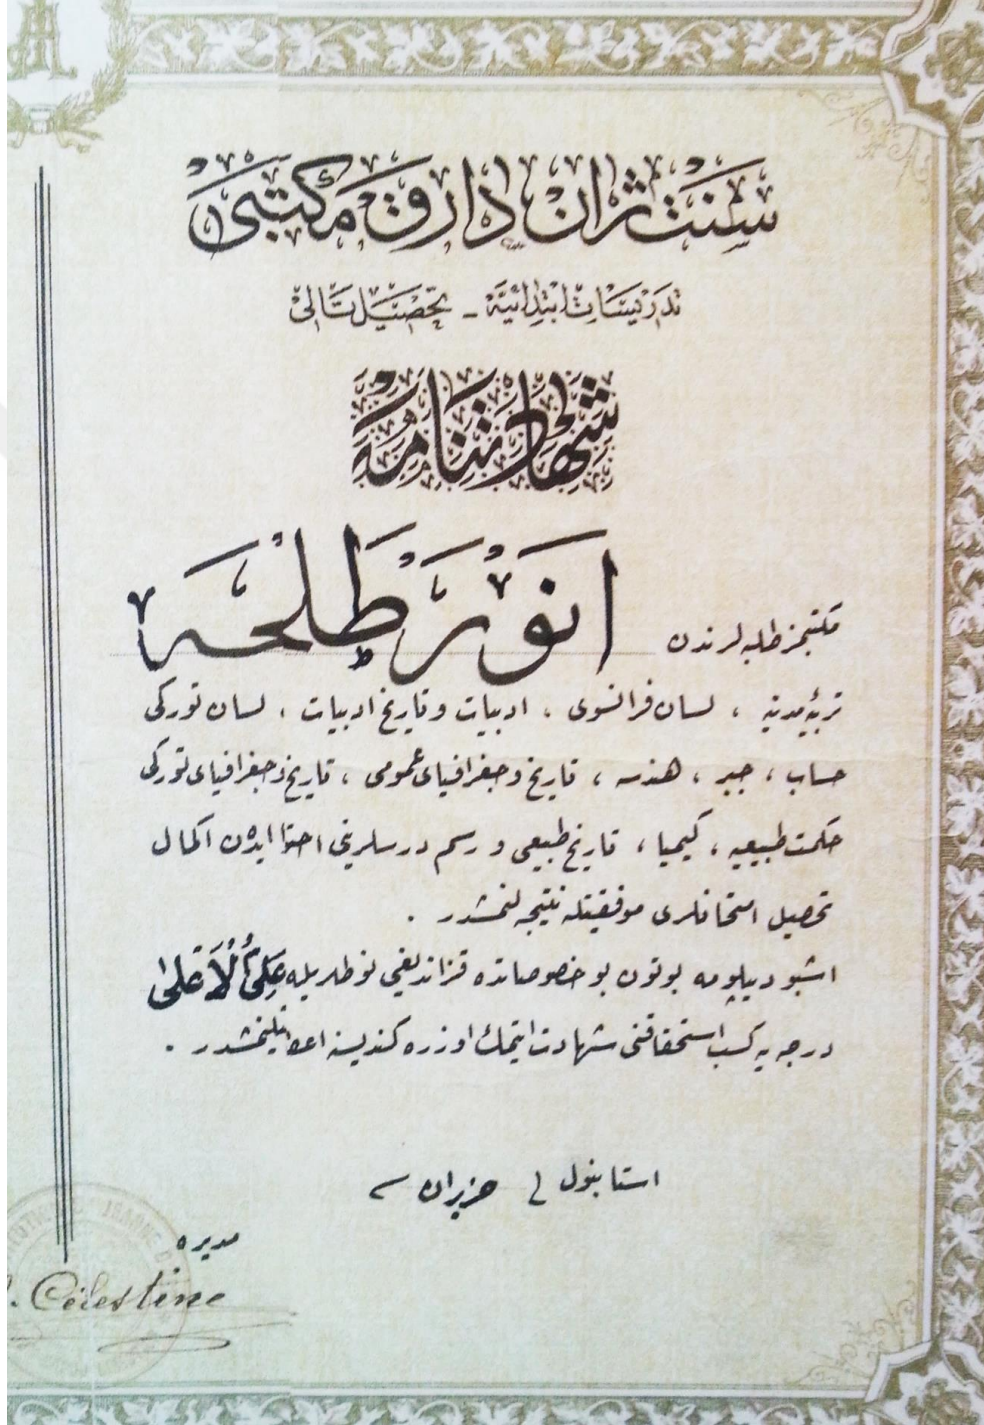 سنت ژان دارق مكتبی
تدريسات ابتدائيه - تحصيل تالی
شهادتنامه
مكتبمز طلبه لرندن انور طلحه
تربيۀ مدنيه ، لسان فرانسوی ، ادبيات و تاريخ ادبيات ، لسان توركی
حساب ، جبر ، هندسه ، تاريخ و جغرافيای عمومی ، تاريخ و جغرافيای توركی
حكمت طبيعيه ، كيميا ، تاريخ طبيعی و رسم درسلرينی احتوا ايدن اكمال
تحصيل امتحانلری موفقيتله نتيجه لنمشدر .
اشبو ديپلومه بوتون بو خصوصاتده قزانديغی نوطه لريله علی الاعلی
درجه يه كسب استحقاقنی شهادت ايتمك اوزره كنديسنه اعطا ايدلمشدر .
استانبول فی حزيران سنه
مديره
Célestine